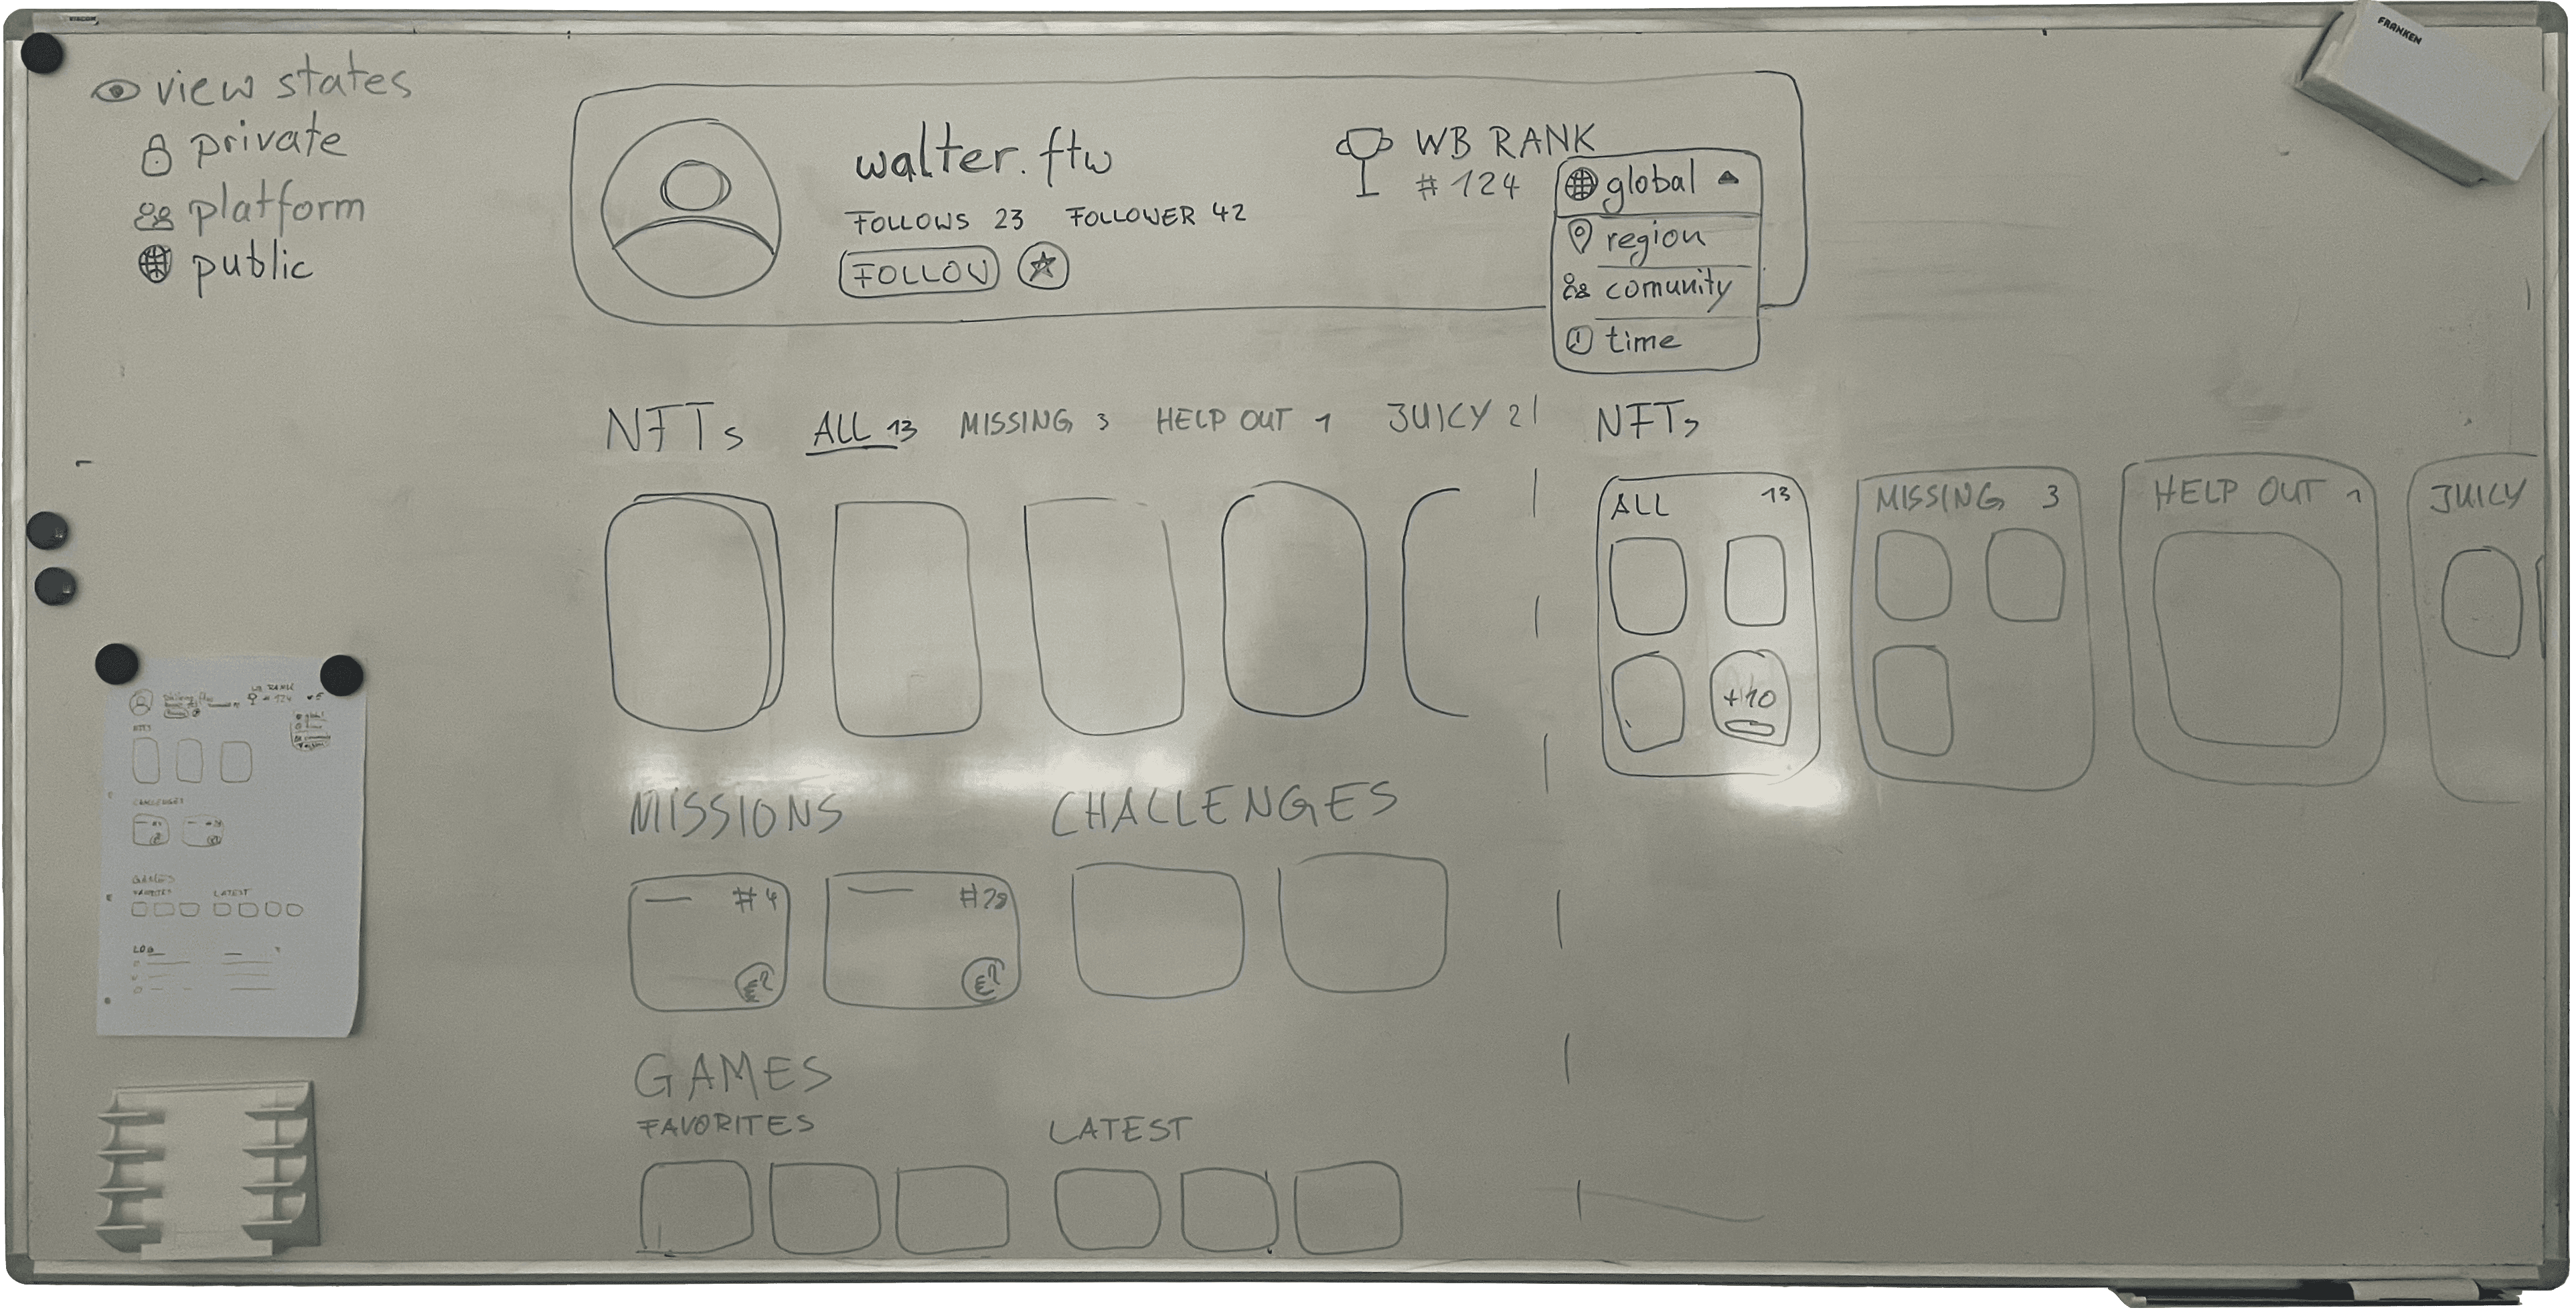 view states
private
platform
public
walter.ftw
FOLLOWS 23 FOLLOWER 42
FOLLOW
WB RANK
# 124
global
region
comunity
time
NFTs ALL 13 MISSING 3 HELP OUT 1 JUICY 2
NFTs
ALL 13
+10
MISSING 3
HELP OUT 1
JUICY
MISSIONS
#4
#28
CHALLENGES
GAMES
FAVORITES
LATEST
FRANKEN
WB RANK
# 124
NFTs
CHALLENGES
GAMES
FAVORITES LATEST
LOG